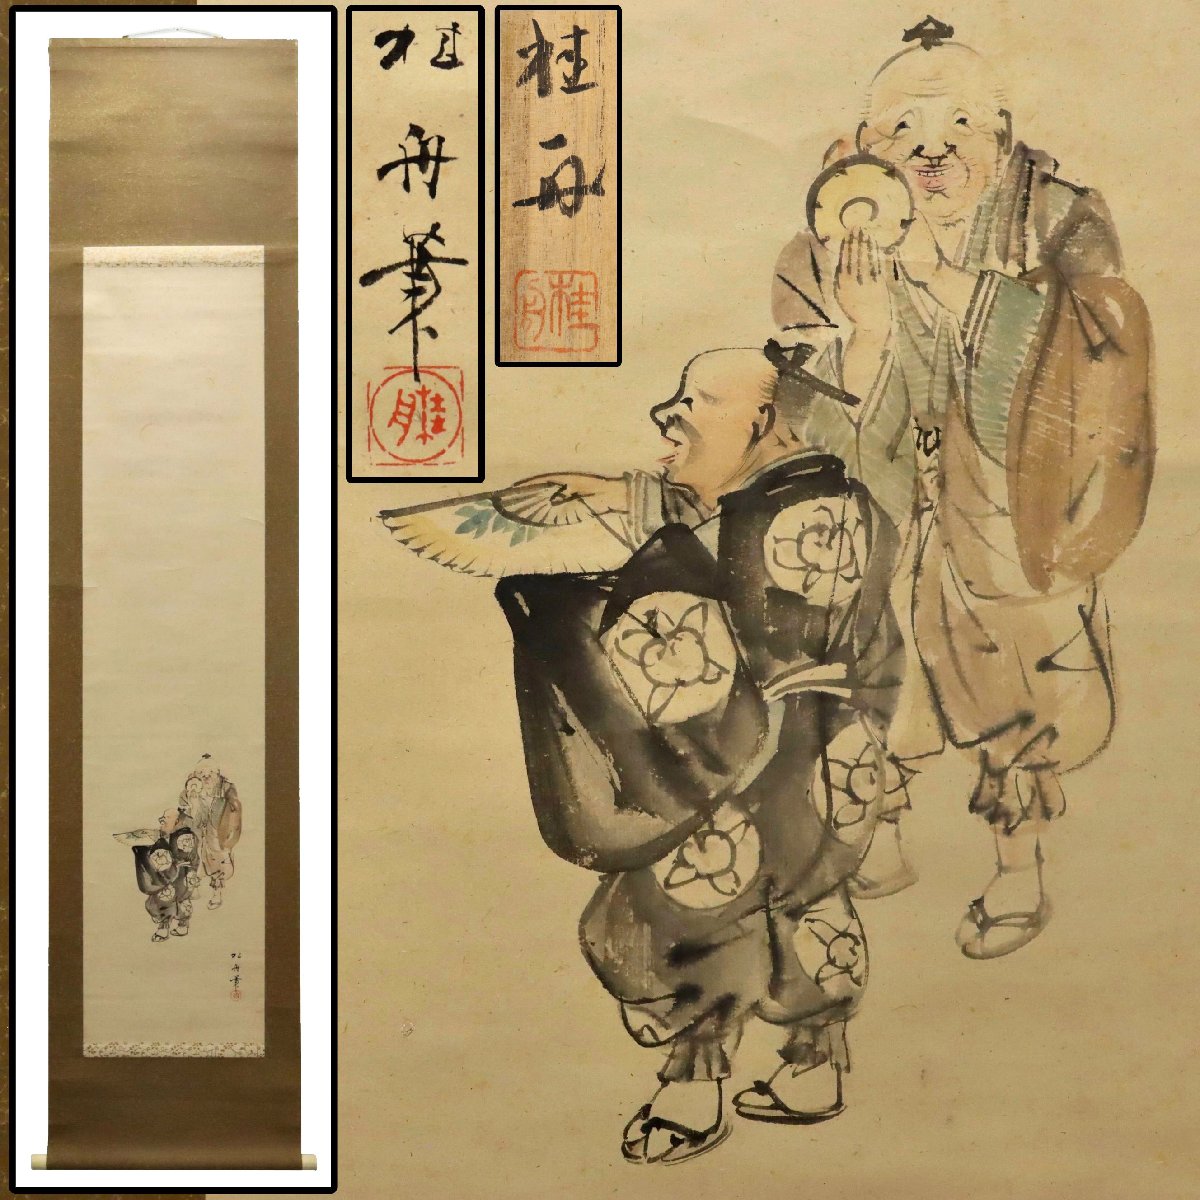 桂舟筆
桂舟
桂舟
桂舟